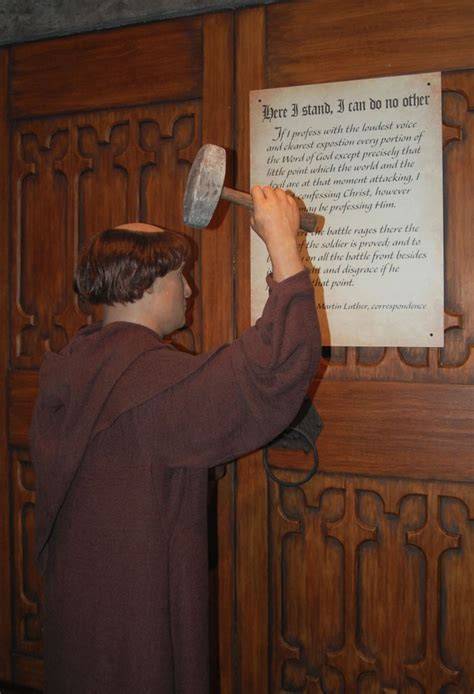 Here I stand, I can do no other
If I profess with the loudest voice
and clearest expostion every portion of
the Word of God except precisely that
little point which the world and the
devil are at that moment attacking, I
confessing Christ, however
may be professing Him.
the battle rages there the
of the soldier is proved; and to
on all the battle front besides
and disgrace if he
that point.
Martin Luther, correspondence